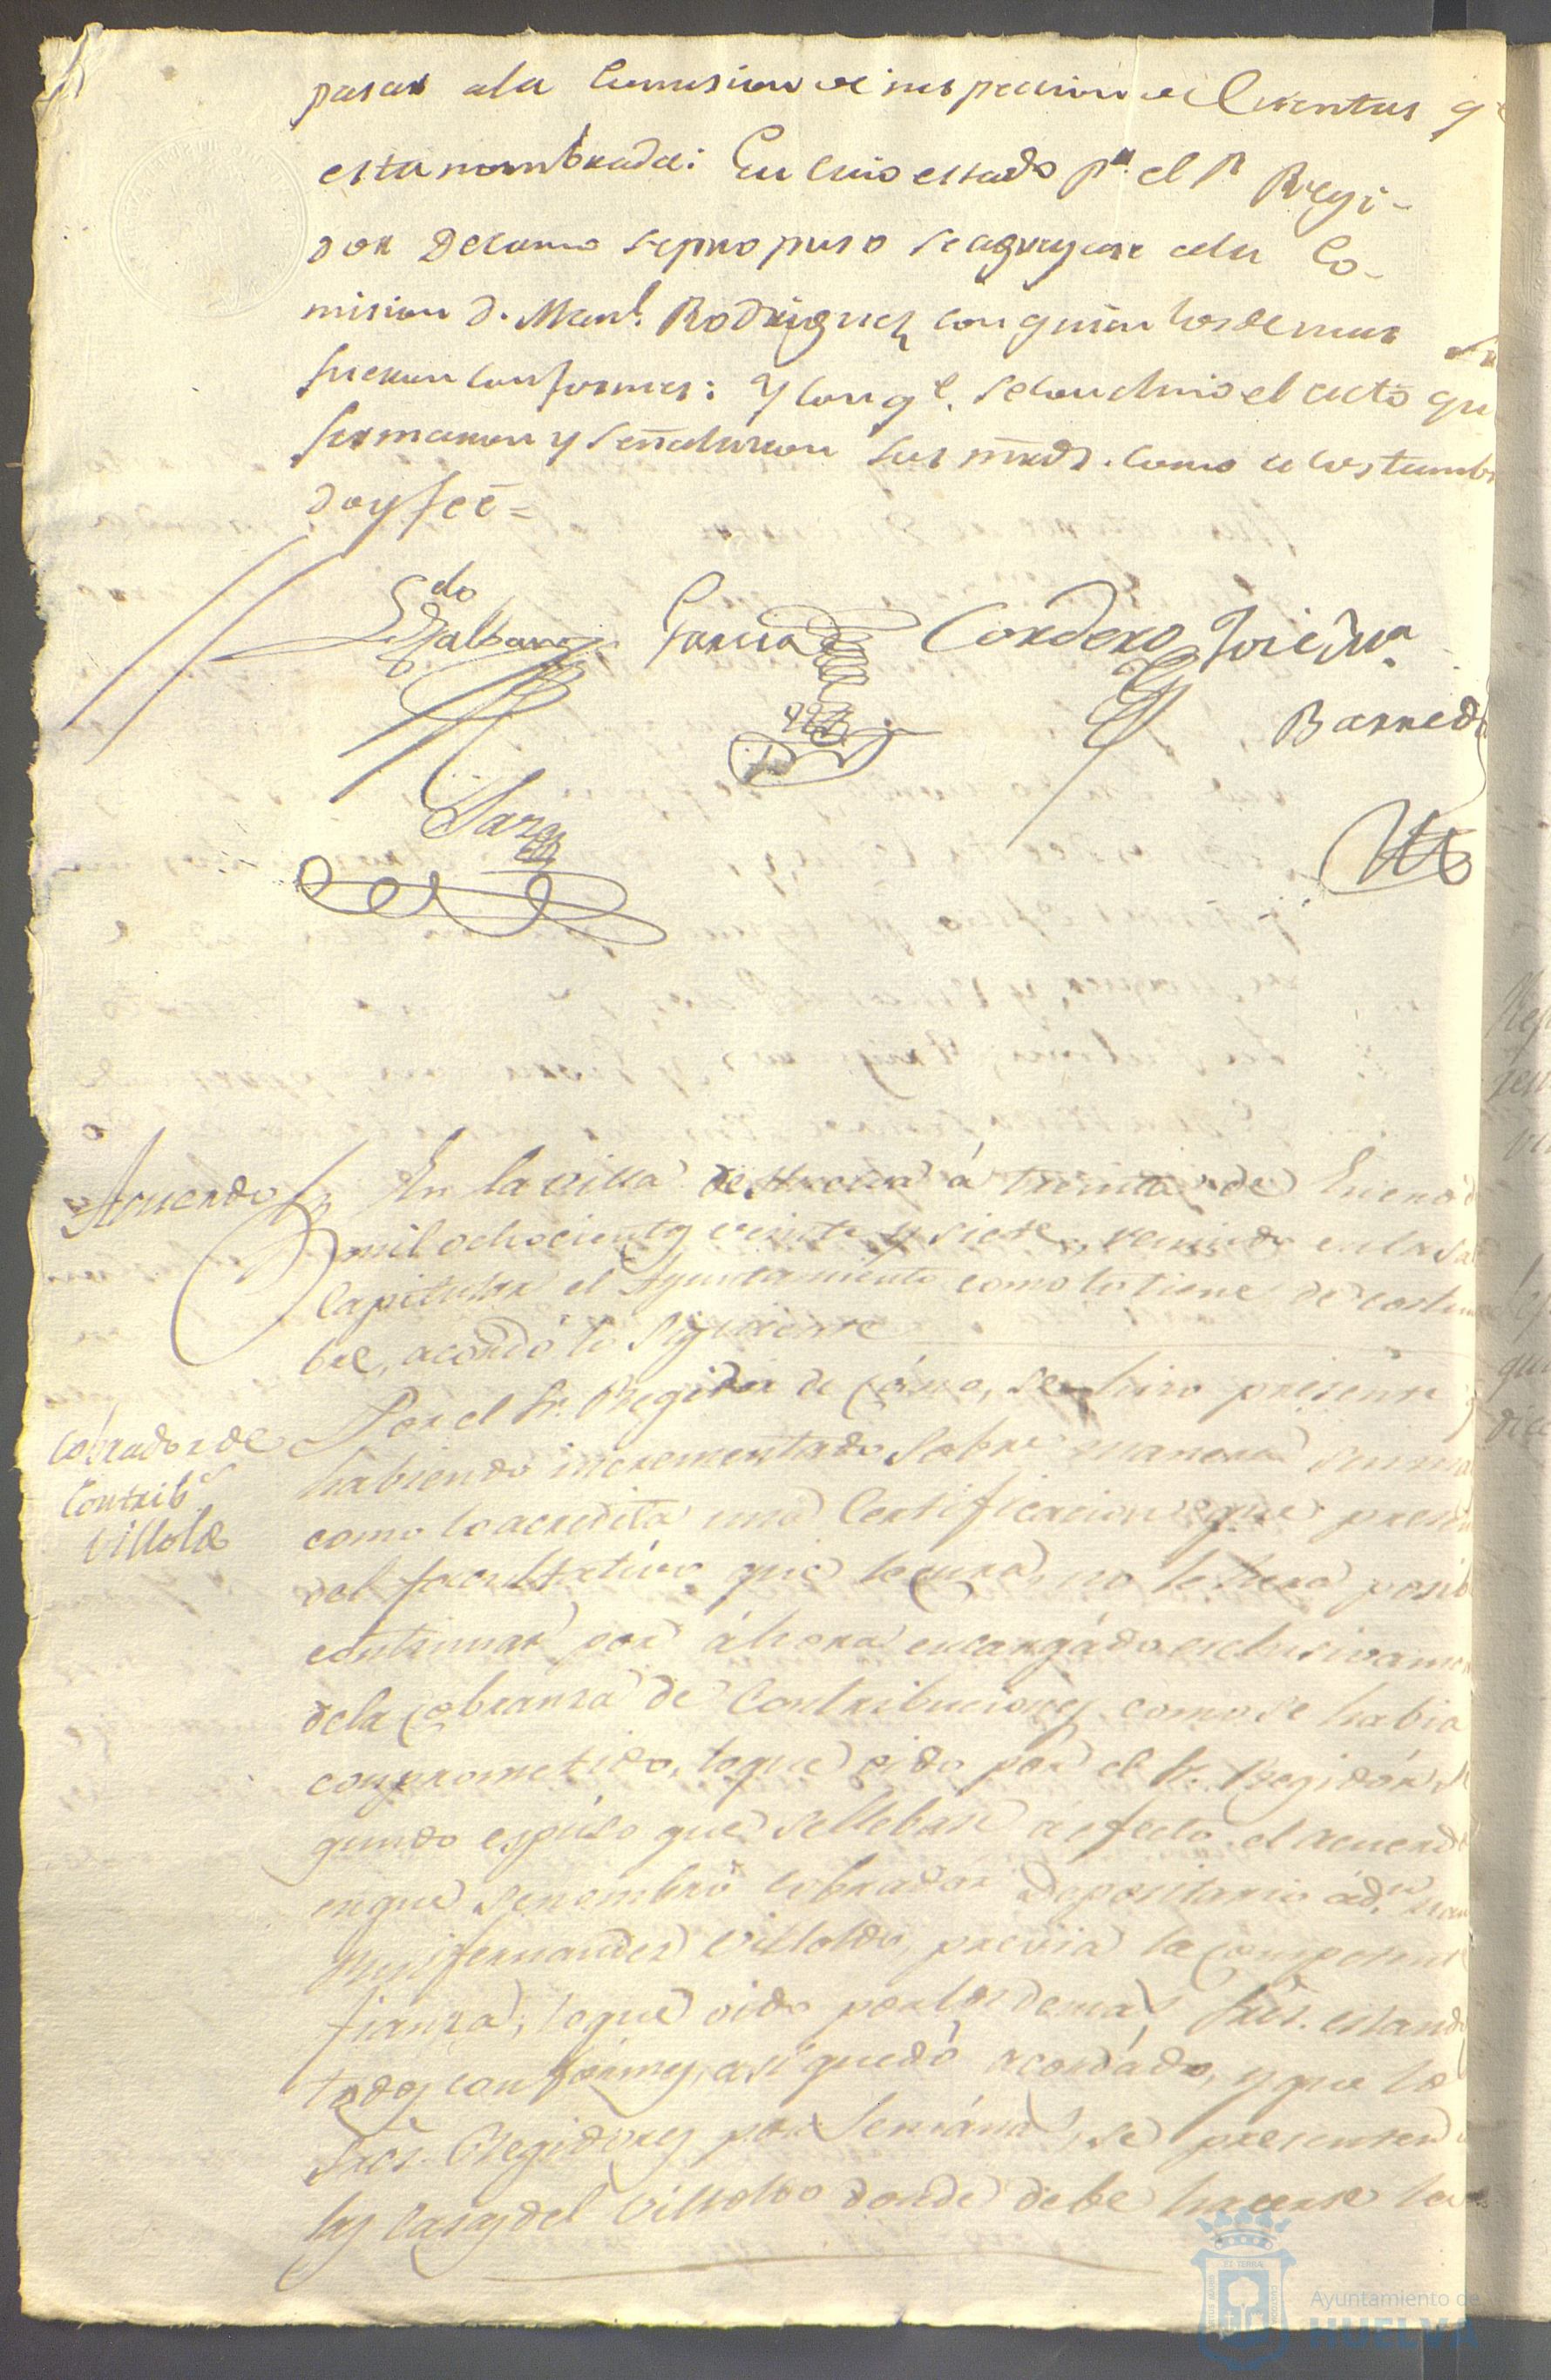 pasar ala Comision de inspeccion de Cuentas q.e
esta nombrada: En cuio estado p.r el S.r Regi-
dor Decano se propuso se agregase ala Co-
mision D. Man.l Rodriguez con quien los demas
fueron conformes: Y con q.e se concluio el acto que
firmaron y señalaron sus mrds. como acostumb
doy feé =
Ldo
Galban Garcia Cordero Jose Ma.
Barreda
Sanz
Acuerdo En la villa de Huelva á treinta de Enero d
mil ochocientos veinte y siete, reunido en la sal
Capitular el Ayuntamiento como lo tiene de costum
bre, acordó lo siguiente
Cobrador de
Contrib.s
Villoldo
Por el Sr. Regidor de cáno, se hizo presente q
habiendo incrementado sobre manera su mal
como lo acredita una Certificacion que presen
del facultativo que le cura, no le hera posib
continuar por áhora encargádo exclusivamen
dela cobranza de Contribuciones como se habia
comprometido, loque oido por el Sr. Regidór se
gundo espúso que se llebase á efecto el acuerd
enque se nombró cobrador Depositario á d.n
Fernandez Villoldo, previa la competente
fianza, loque oido por los demas Sres. estand
todos conformes, asi quedó acordádo, y que lo
Sres. Regidores por Semána, se presenten
las casas del Villoldo donde debe hacerse la
Ayuntamiento de
HUELVA